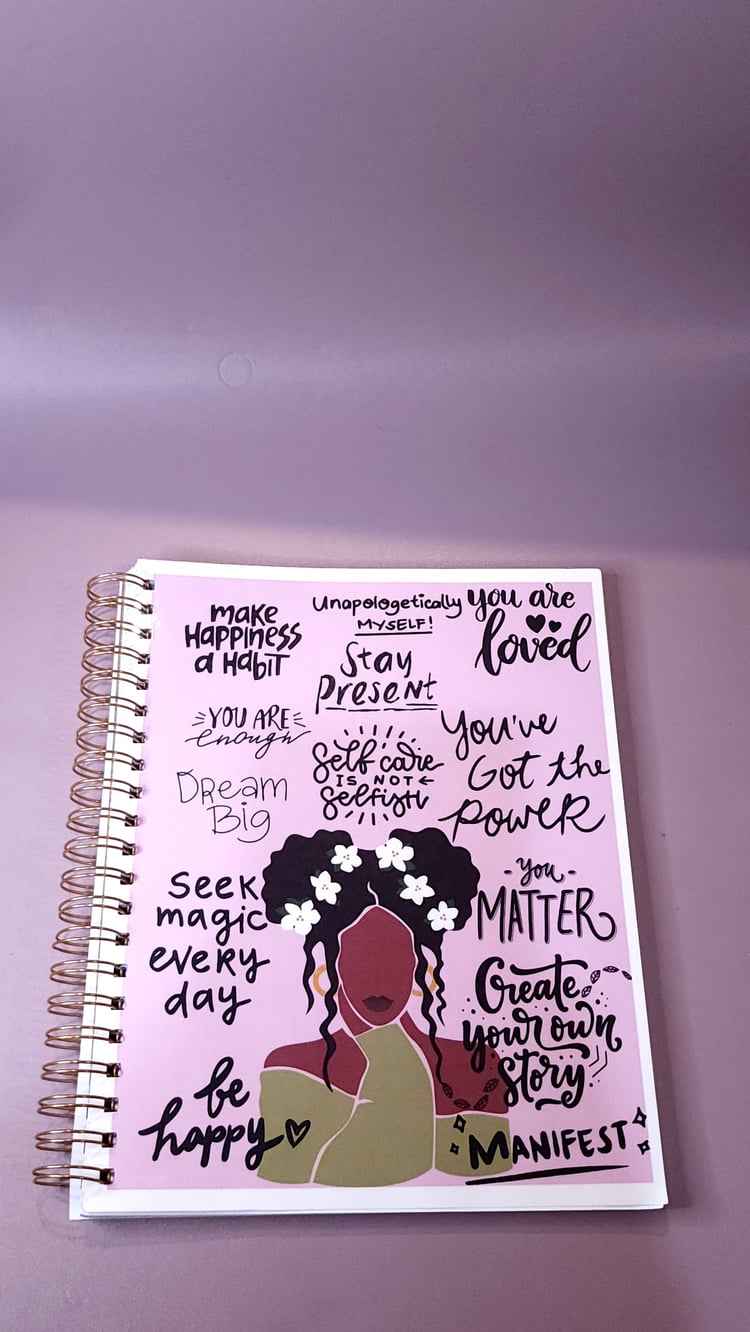 make
HAPPINESS
a HabiT
Unapologetically
MYSELF!
you are
loved
Stay
Present
YOU ARE
enough
Self care
IS NOT
Selfish
You've
Got the
Power
Dream
Big
Seek
magic
every
day
you
MATTER
Create
your own
Story
be
happy
MANIFEST